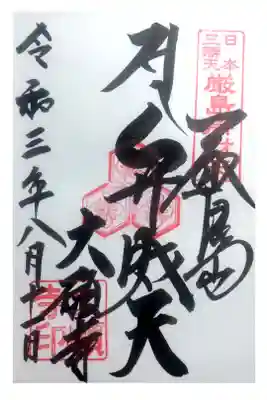 日本
三辨天
厳島
厳島
弁財天
大願寺
令和三年八月十一日